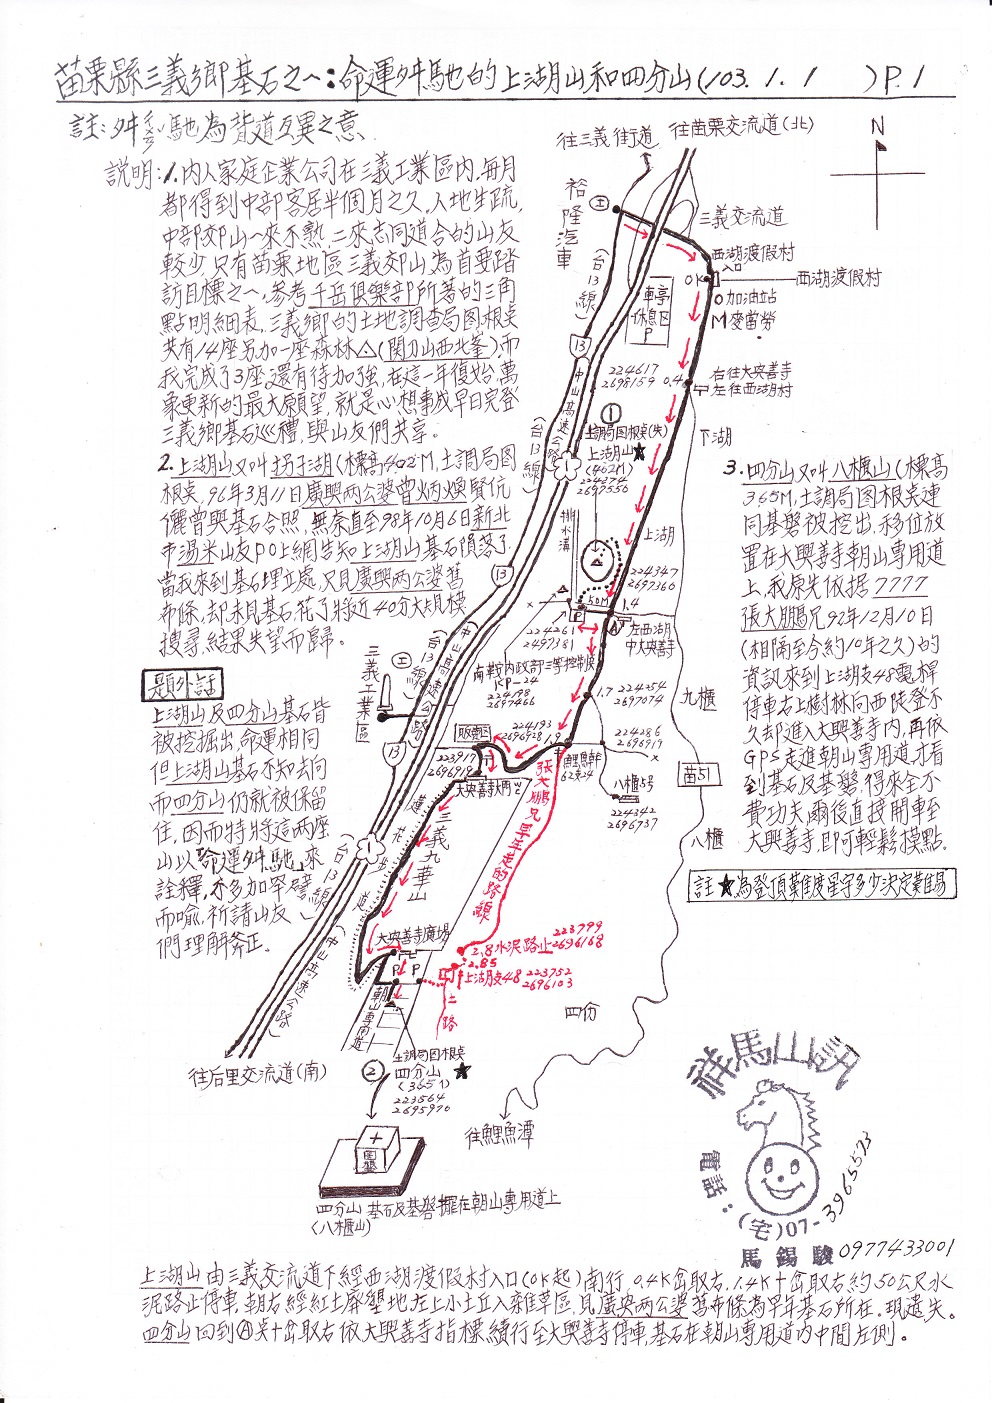 苗栗縣三義鄉基石之一:命運舛馳的上湖山和四分山(103.1.1 )P.1
註:舛ㄔㄨㄢˇ馳為背道互異之意
說明:1.內人家庭企業公司在三義工業區內,每月
都得到中部客居半個月之久,人地生疏,
中部郊山一來不熟,二來志同道合的山友
較少,只有苗栗地區三義郊山為首要踏
訪目標之一,參考千岳俱樂部所著的三角
點明細表,三義鄉的土地調查局圖根點
共有14座另加一座森林△(關刀山西北峯),而
我完成了3座,還有待加強,在這一年復始,萬
象更新的最大願望,就是心想事成早日完登
三義鄉基石巡禮,與山友們共享。
2.上湖山又叫拐子湖(標高402M,土調局圖
根點,96年3月11日廣興兩公婆曾炳煥賢伉
儷曾與基石合照,無奈直至98年10月6日新北
市湯米山友PO上網告知上湖山基石隕落了,
當我來到基石埋立處,只見廣興兩公婆舊
布條,卻未見基石,花了將近40分大規模
搜尋,結果失望而歸。
題外話
上湖山及四分山基石皆
被挖掘出,命運相同
但上湖山基石不知去向
而四分山仍就被保留
住,因而特將這兩座
山以「命運舛馳」來
詮釋,不多加罕譬
而喻,祈請山友
們理解斧正。
3.四分山又叫八櫃山(標高
365M,土調局圖根點連
同基磐被挖出,移位放
置在大興善寺朝山專用道
上,我原先依據7777
張大鵬兄92年12月10日
(相隔至今約10年之久)的
資訊來到上湖支48電桿
停車右上樹林向西陡登不
久卻進入大興善寺內,再依
GPS走進朝山專用道,才看
到基石及基磐,得來全不
費功夫,爾後直接開車至
大興善寺,即可輕鬆摸點。
註★為登頂難度星字多少決定難易
往三義街道
往苗栗交流道(北)
N
裕隆汽車
工
(台13線)
三義交流道
西湖渡假村
入口
西湖渡假村
0K
加油站
M麥當勞
車亭
休息区
P
13
224617
2698159
0.4
右往大興善寺
左往西湖村
中山高速公路
(台13線)
1
①
土調局圖根點(失)
上湖山★
(402M)
224274
2697556
下湖
排水溝
上湖
224347
2697360
50M
P
1.4
A
左西湖
中大興善寺
224261
2697381
13
南鞍內政部三等控制點
KP-24
224798
2697466
1.7
224354
2697074
九櫃
三義工業區
工
(台13線)
中山高速公路
販賣区
224193
2696928
1.9
224286
2696919
鯉魚幹
62支24
苗51
13
223917
2696918
大興善寺大門
八櫃5号
224342
2696737
八櫃
張大鵬兄早年走的路線
三義九華山
健步道
1
(台13線)
(中山高速公路)
大興善寺廣場
P
P
2.8水泥路止
223799
2696168
2.85
上湖支48
223752
2696103
土路
朝山專用道
四份
往后里交流道(南)
土調局圖根點
②
四分山★
(365M)
223564
2695970
往鯉魚潭
四分山
(八櫃山)
基石及基磐擺在朝山專用道上
祥馬山訊
電話:
(宅)07-3965573
馬錫駿
0977433001
上湖山由三義交流道下經西湖渡假村入口(0K起)南行,0.4K岔取右,1.4K十岔取右約50公尺水
泥路止停車,朝右經紅土廢墾地左上小土丘入雜草區,見廣興兩公婆舊布條為早年基石所在。現遺失。
四分山回到Ⓐ點十岔取右依大興善寺指標續行至大興善寺停車,基石在朝山專用道內中間左側。